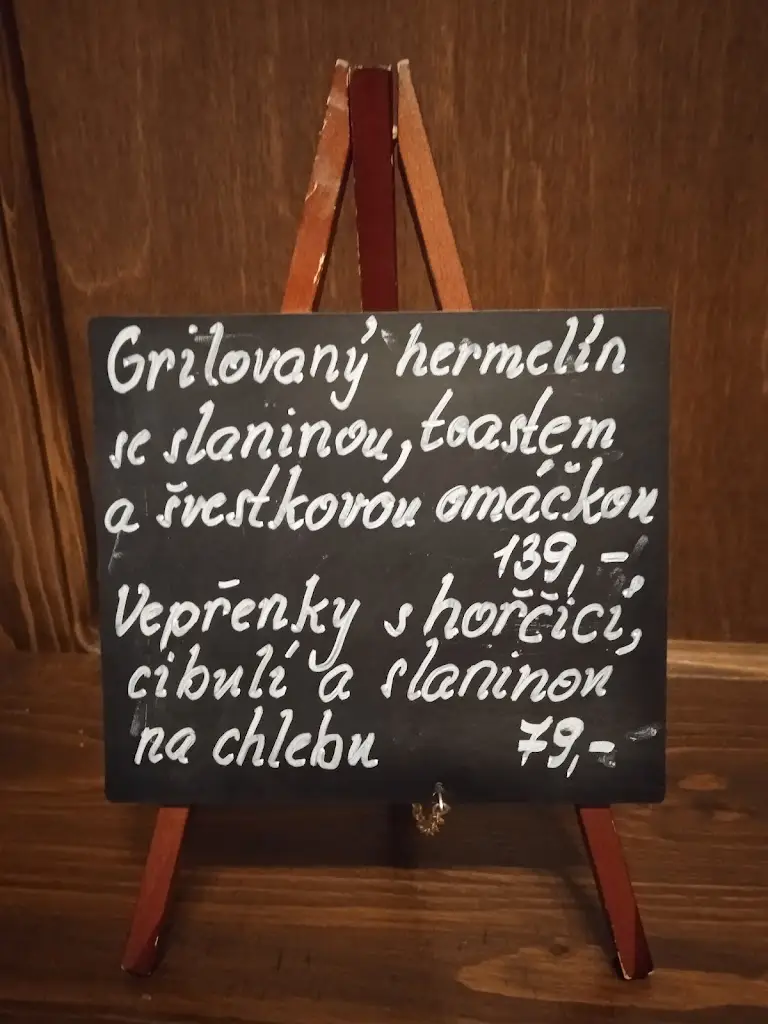 Grilovaný hermelín
se slaninou, toastem
a švestkovou omáčkou
139,-
Vepřenky s hořčicí,
cibulí a slaninou
na chlebu 79,-